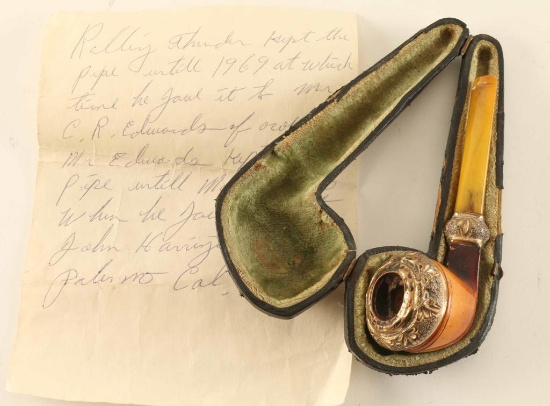 Rolling Thunder kept the
pipe untill 1969 at which
time he gave it to Mr
C. R. Edwards of
Mr Edwards kept
pipe untill
When he gave
John
Palermo Cal,